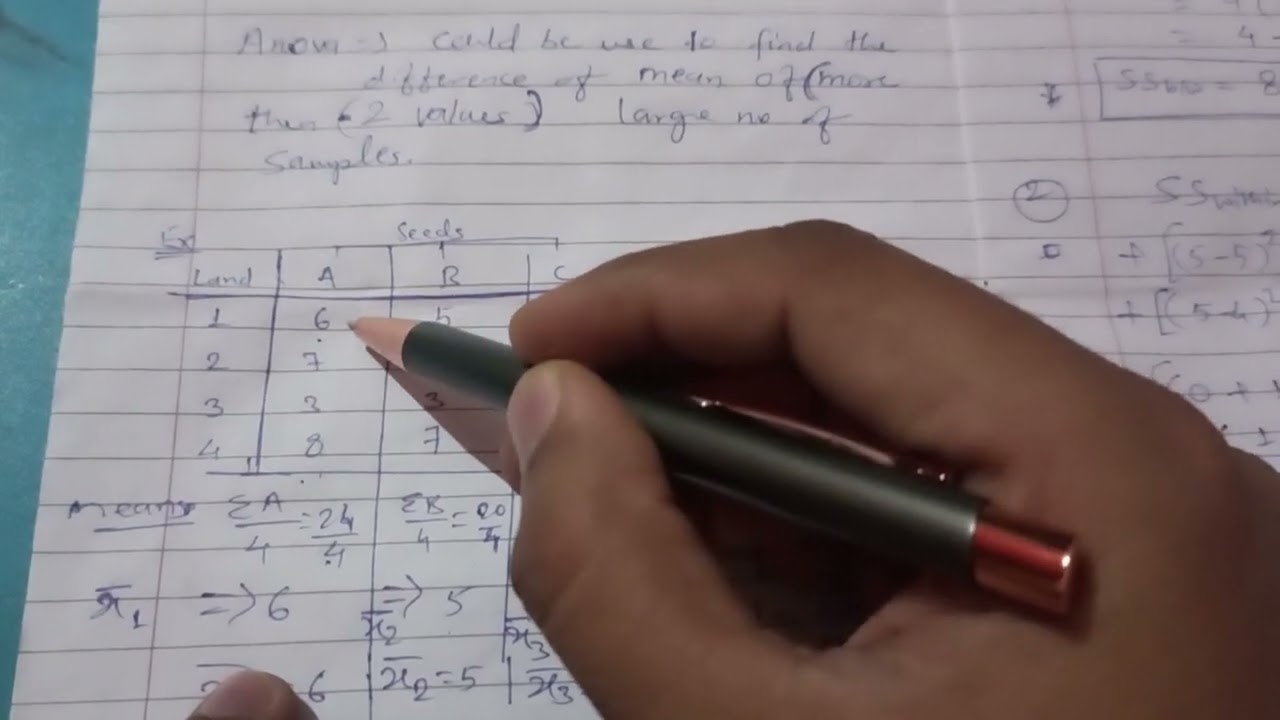 Anova -> could be use to find the
difference of mean of (more
then - 2 values) large no of
Samples.
Ex
Seeds
Land A B C
1 6 5
2 7
3 3 3
4 8 7
Means ΣA/4 = 24/4 ΣB/4 = 20/4
x̄1 => 6 => 5
x̄2 x̄3
= 6 x̄2 = 5 x̄3
= 4
= 8
2 SS
+ [(5-5)²
+ [(5-4)²